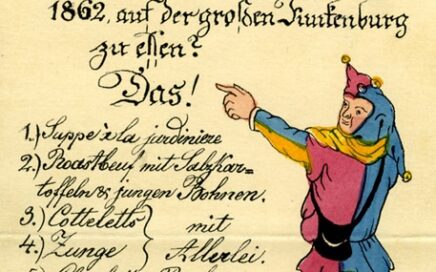 1862, auf der großen Funkenburg
zu essen?
Das!
1.) Suppe à la jardiniere
2.) Roastbeuf mit Salzkar-
toffeln & jungen Bohnen.
3.) Cotteletts } mit
4.) Zunge } Allerlei.